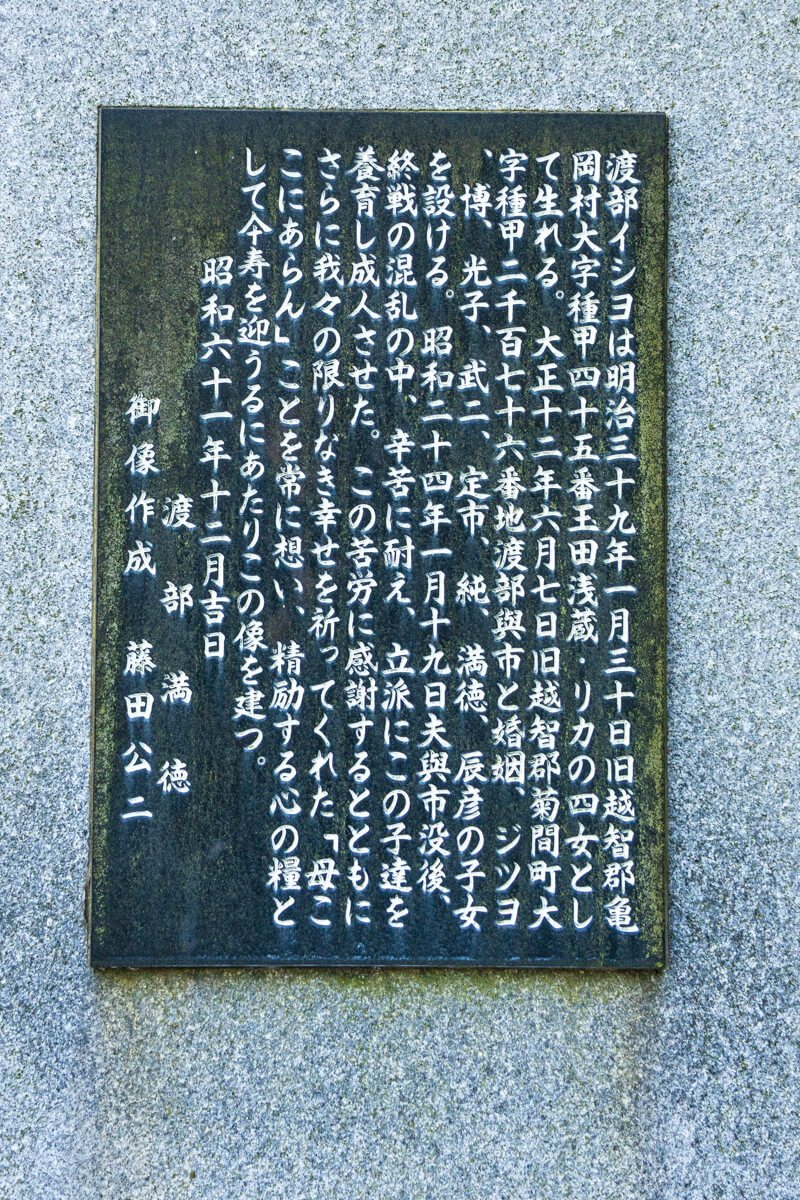 渡部イシヨは明治三十九年一月三十日旧越智郡亀
岡村大字種甲四十五番王田浅蔵・リカの四女とし
て生れる。大正十二年六月七日旧越智郡菊間町大
字種甲二千百七十六番地渡部與市と婚姻、ジツヨ
、博、光子、武二、定市、純、満徳、辰彦の子女
を設ける。昭和二十四年一月十九日夫與市没後、
終戦の混乱の中、辛苦に耐え、立派にこの子達を
養育し成人させた。この苦労に感謝するとともに
さらに我々の限りなき幸せを祈ってくれた「母こ
こにあらん」ことを常に想い、精励する心の糧と
して仐寿を迎うるにあたりこの像を建つ。
昭和六十一年十二月吉日
渡部満徳
御像作成 藤田公二